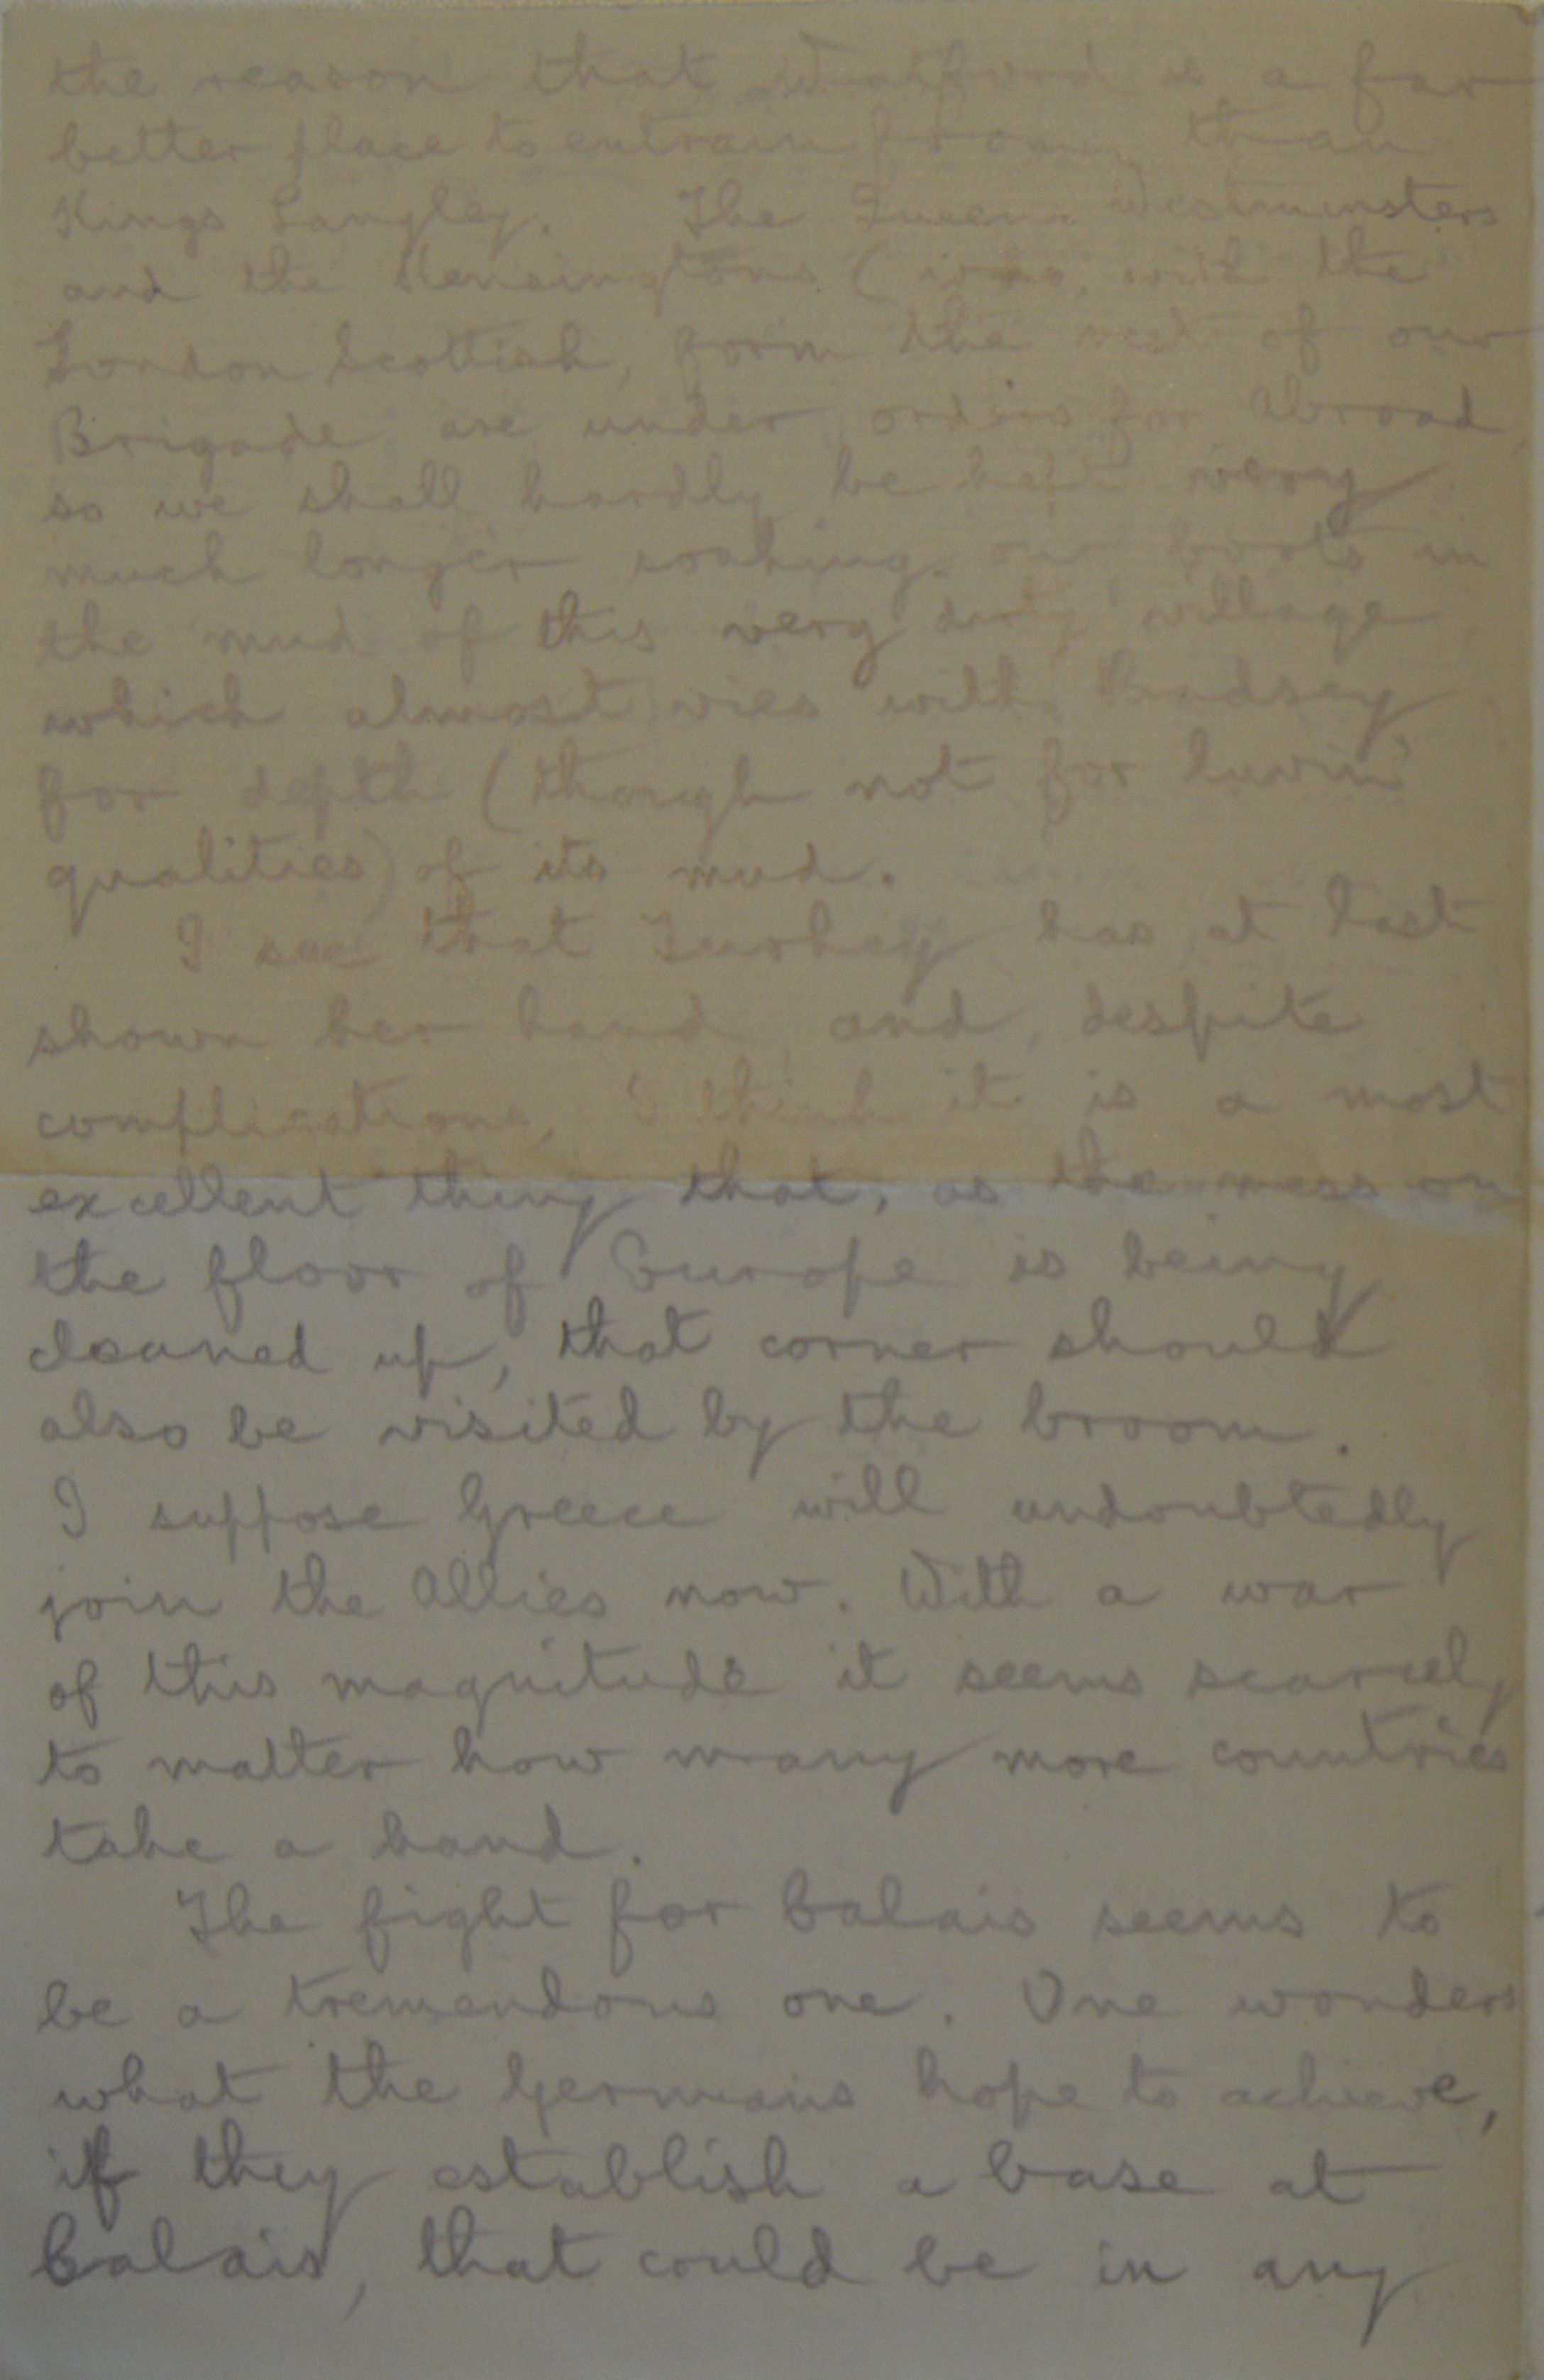 the reason that Watford is a far
better place to entrain from than
Kings Langley. The Queens Westminsters
and the Kensingtons (who, with the
London Scottish, form the rest of our
Brigade are under orders for abroad,
so we shall hardly be kept very
much longer soaking our boots in
the mud of this very dirty village
which almost vies with Badsey
for depth (though not for luvin'
qualities) of its mud.
I see that Turkey has at last
shown her hand and, despite
complications, I think it is a most
excellent thing that, as the mess on
the floor of Europe is being
cleaned up, that corner should
also be visited by the broom.
I suppose Greece will undoubtedly
join the Allies now. With a war
of this magnitude it seems scarcely
to matter how many more countries
take a hand.
The fight for Calais seems to
be a tremendous one. One wonders
what the Germans hope to achieve,
if they establish a base at
Calais, that could be in any